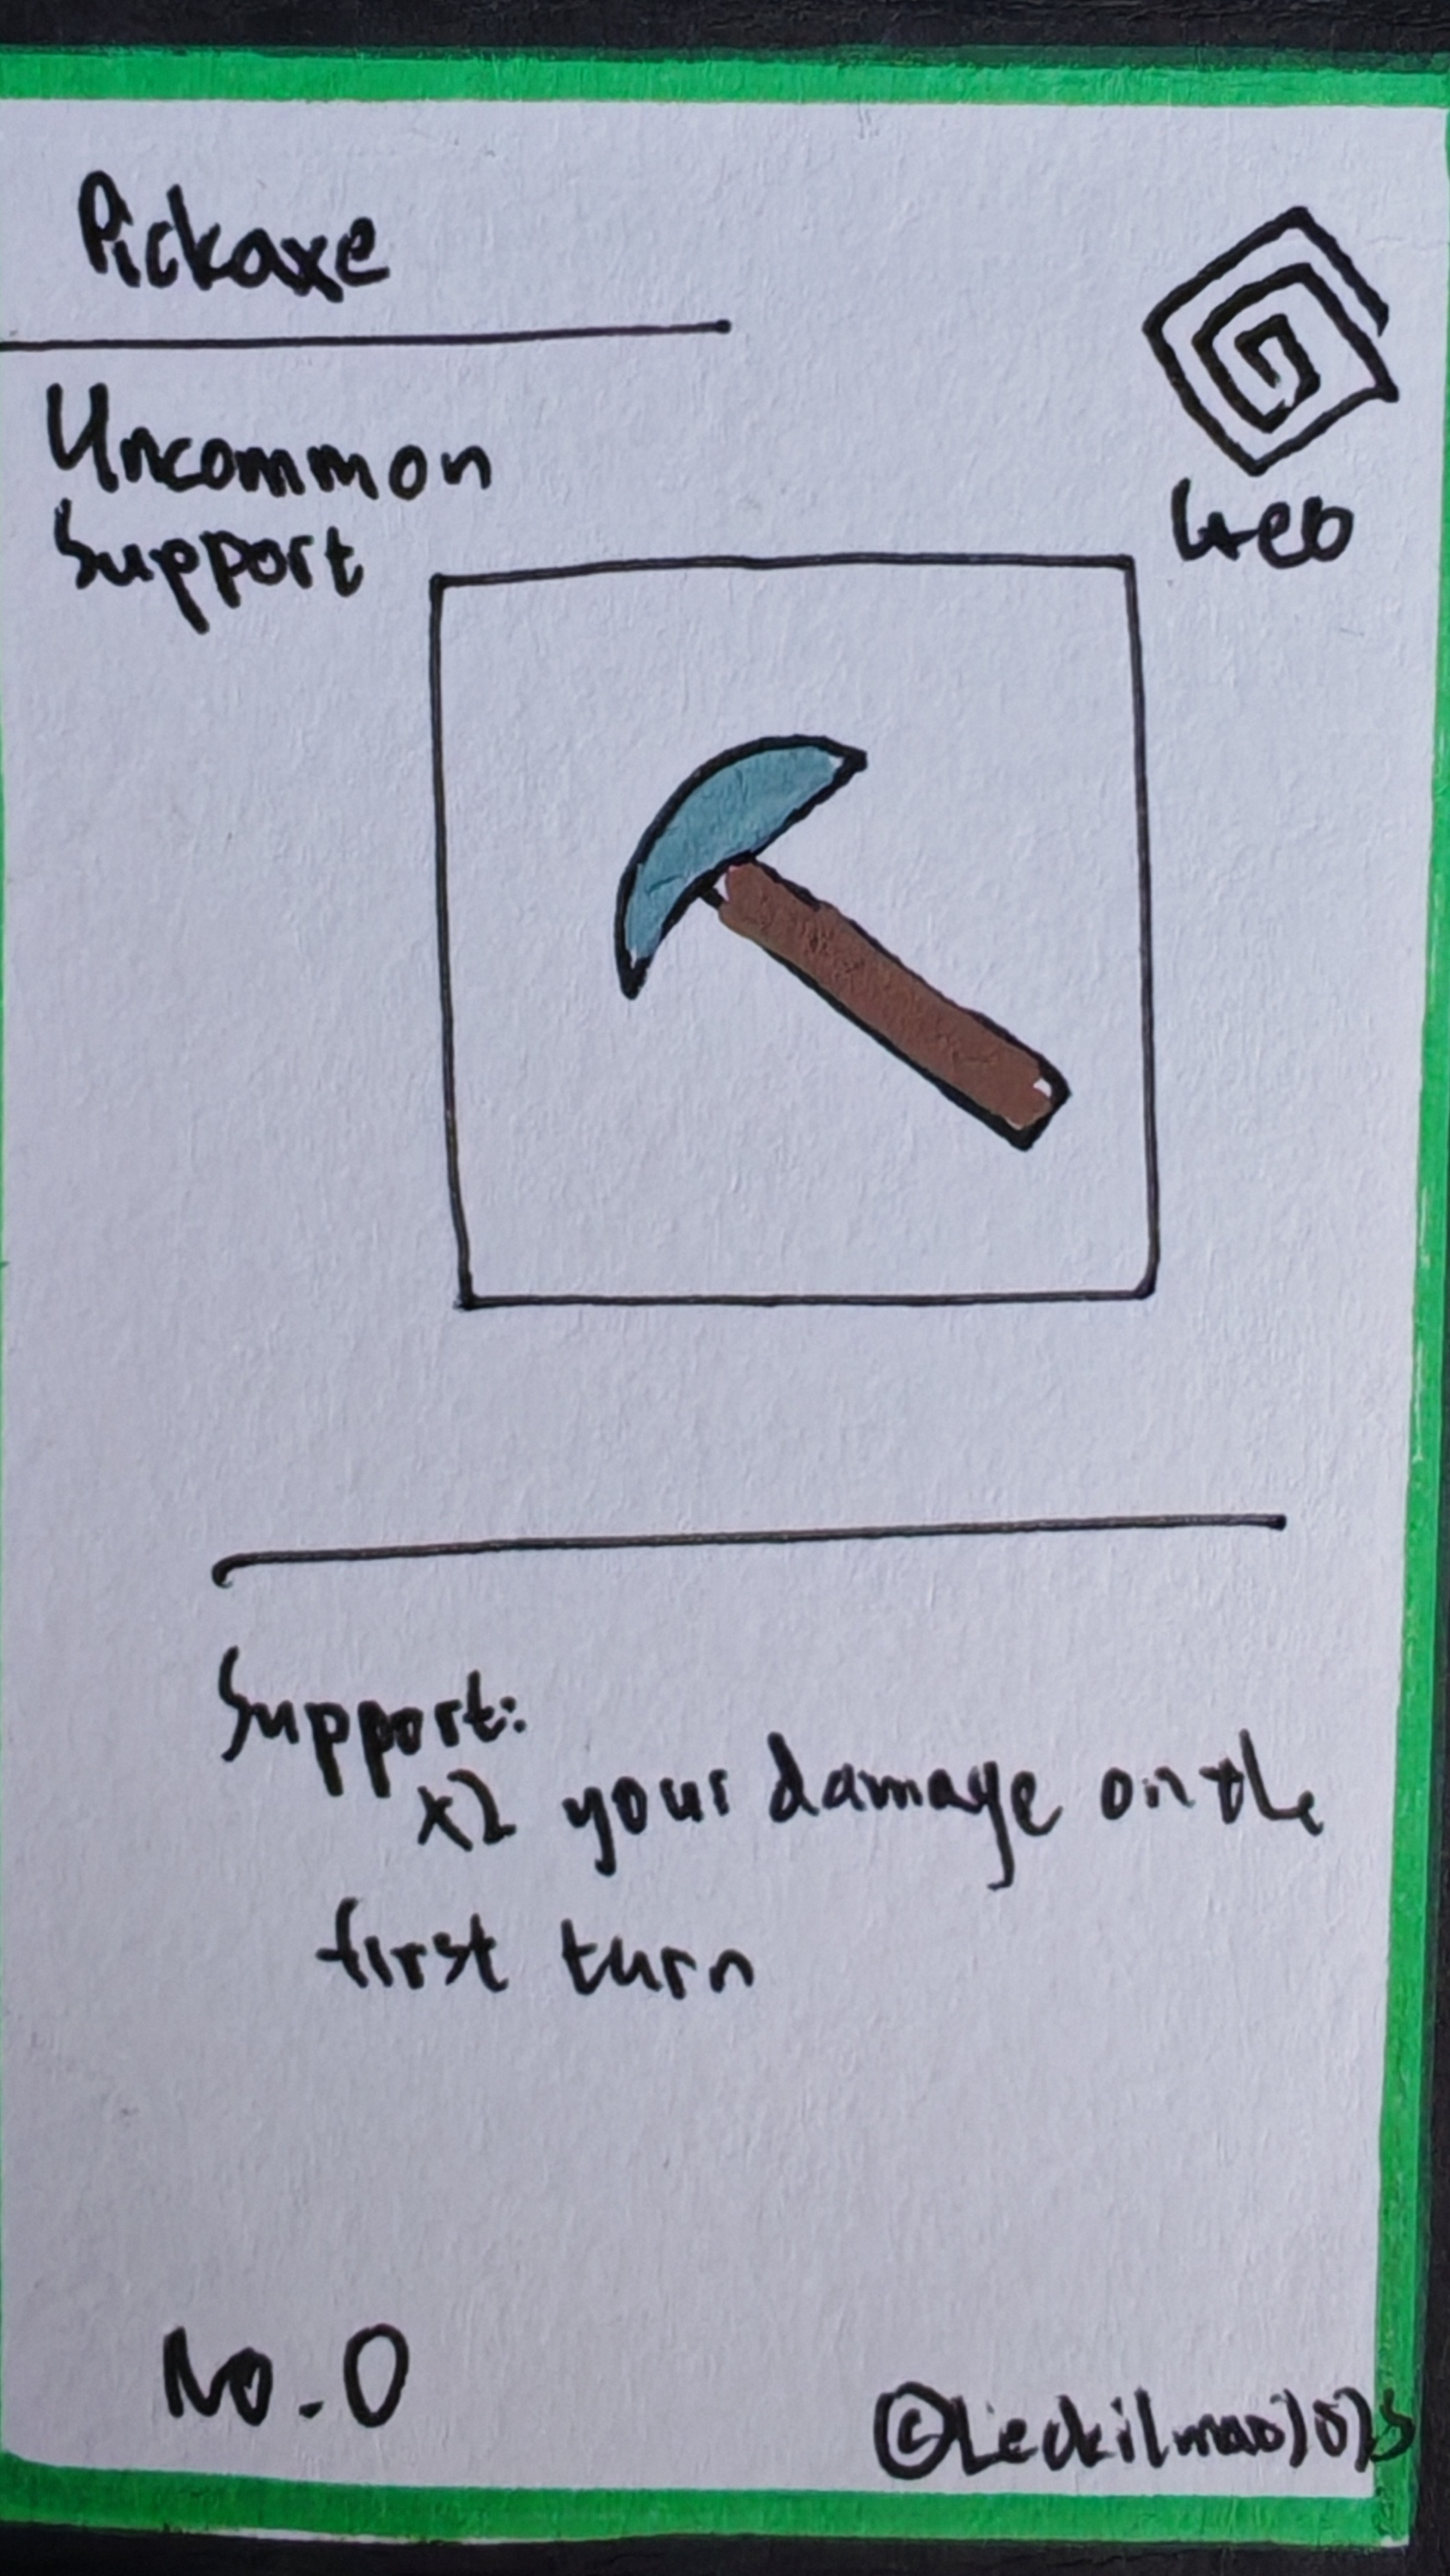 Pickaxe
Uncommon
Support
Geo
Support:
x2 your damage on the
first turn
No. 0
©